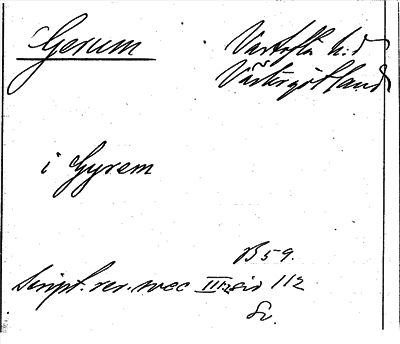 Gerum
Vartofta h:d
Västergötland
i Gyrem
B 59.
Script. rer. svec III:2 sid 112
Sv.